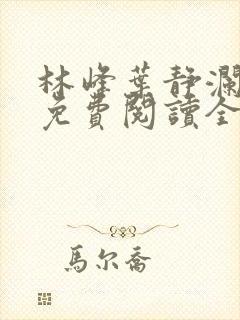 林峰葉靜瀾
免費閱讀全
馬尔喬